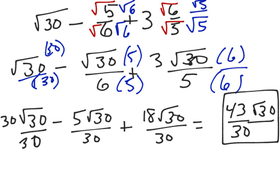 √30 − √5/√6 · √6/√6 + 3 √6/√5 · √5/√5
√30 (30)/(30) − √30 (5)/6 (5) + 3 √30 (6)/5 (6)
30√30/30 − 5√30/30 + 18√30/30 = 43√30/30